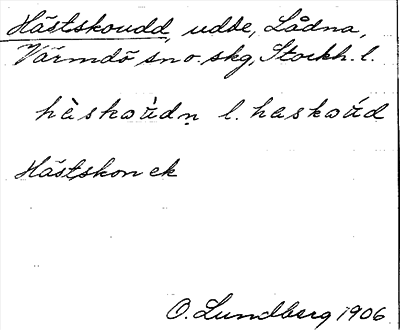 Hästskoudd, udde, Lådna,
Värmdö sn o. skg, Stockh. l.
hàskoùdṇ l. haskoúd
Hästskon ek
O. Lundberg 1906